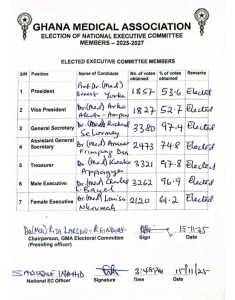 GHANA MEDICAL ASSOCIATION
ELECTION OF NATIONAL EXECUTIVE COMMITTEE
MEMBERS – 2025-2027
ELECTED EXECUTIVE COMMITTEE MEMBERS
S/N Position Name of Candidate No. of votes obtained % of votes obtained Remarks
1 President Prof. Dr. (Med) Ernest Yorke 1857 53.6 Elected
2 Vice President Dr. (Med) 1827 52.7 Elected
3 General Secretary Dr. (Med) Richard Selormey 3380 97.4 Elected
4 Assistant General Secretary Dr. (Med) Frimpong 2473 74.8 Elected
5 Treasurer Dr. (Med) Appiagyei 3321 97.8 Elected
6 Male Executive Dr. (Med) Charles 3262 96.9 Elected
7 Female Executive Dr. (Med) Louisa Nkrumah 2120 61.2 Elected
Dr. (Med) Rita Larsen-Reindorf 15-11-25
Chairperson, GMA Electoral Committee Sign Date
(Presiding officer)
3:48pm 15/11/25
National EC Officer Signature Time Date